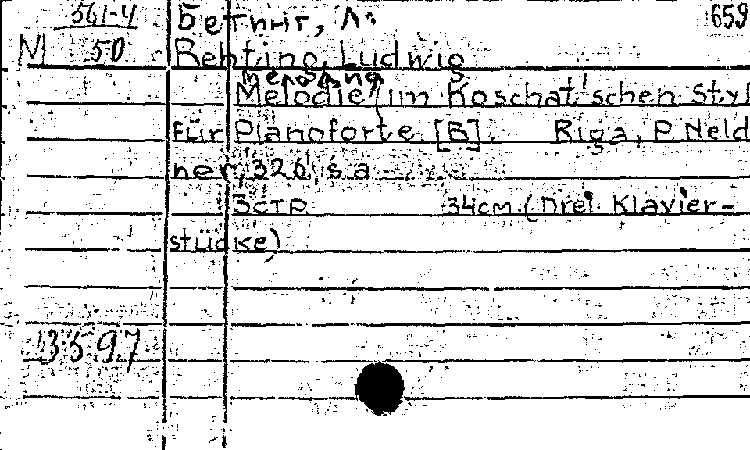 561-4 Бетинг, Л. 659
М 50 Behting, Ludwig
Мелодия
Melodie im Koschat'schen Styl
für Pianoforte [B]. Riga, P Neld
ner, 326, s a
3стр 34см. (Drei Klavier-
stücke)
13597